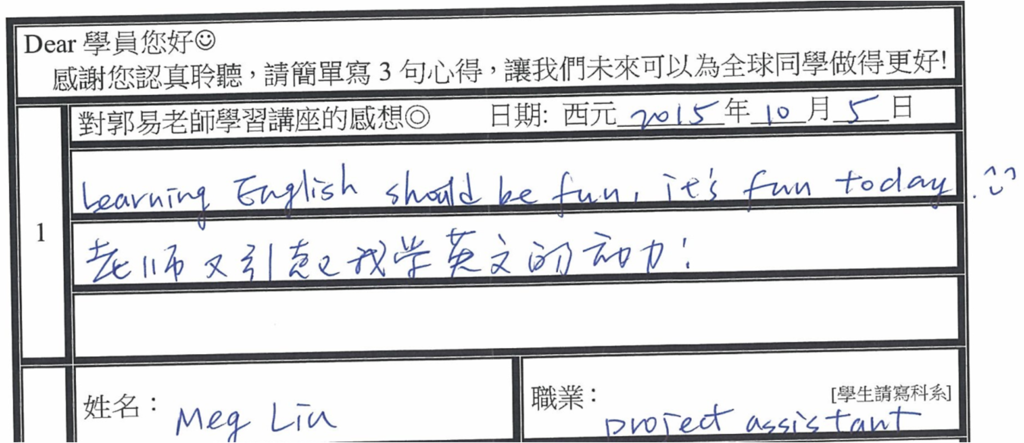 Dear 學員您好☺
感謝您認真聆聽，請簡單寫 3 句心得，讓我們未來可以為全球同學做得更好!
對郭易老師學習講座的感想◎ 日期: 西元 2015 年 10 月 5 日
1
Learning English should be fun, it's fun today. :)
老师又引起我学英文的动力!
姓名： Meg Liu
職業： [學生請寫科系]
project assistant